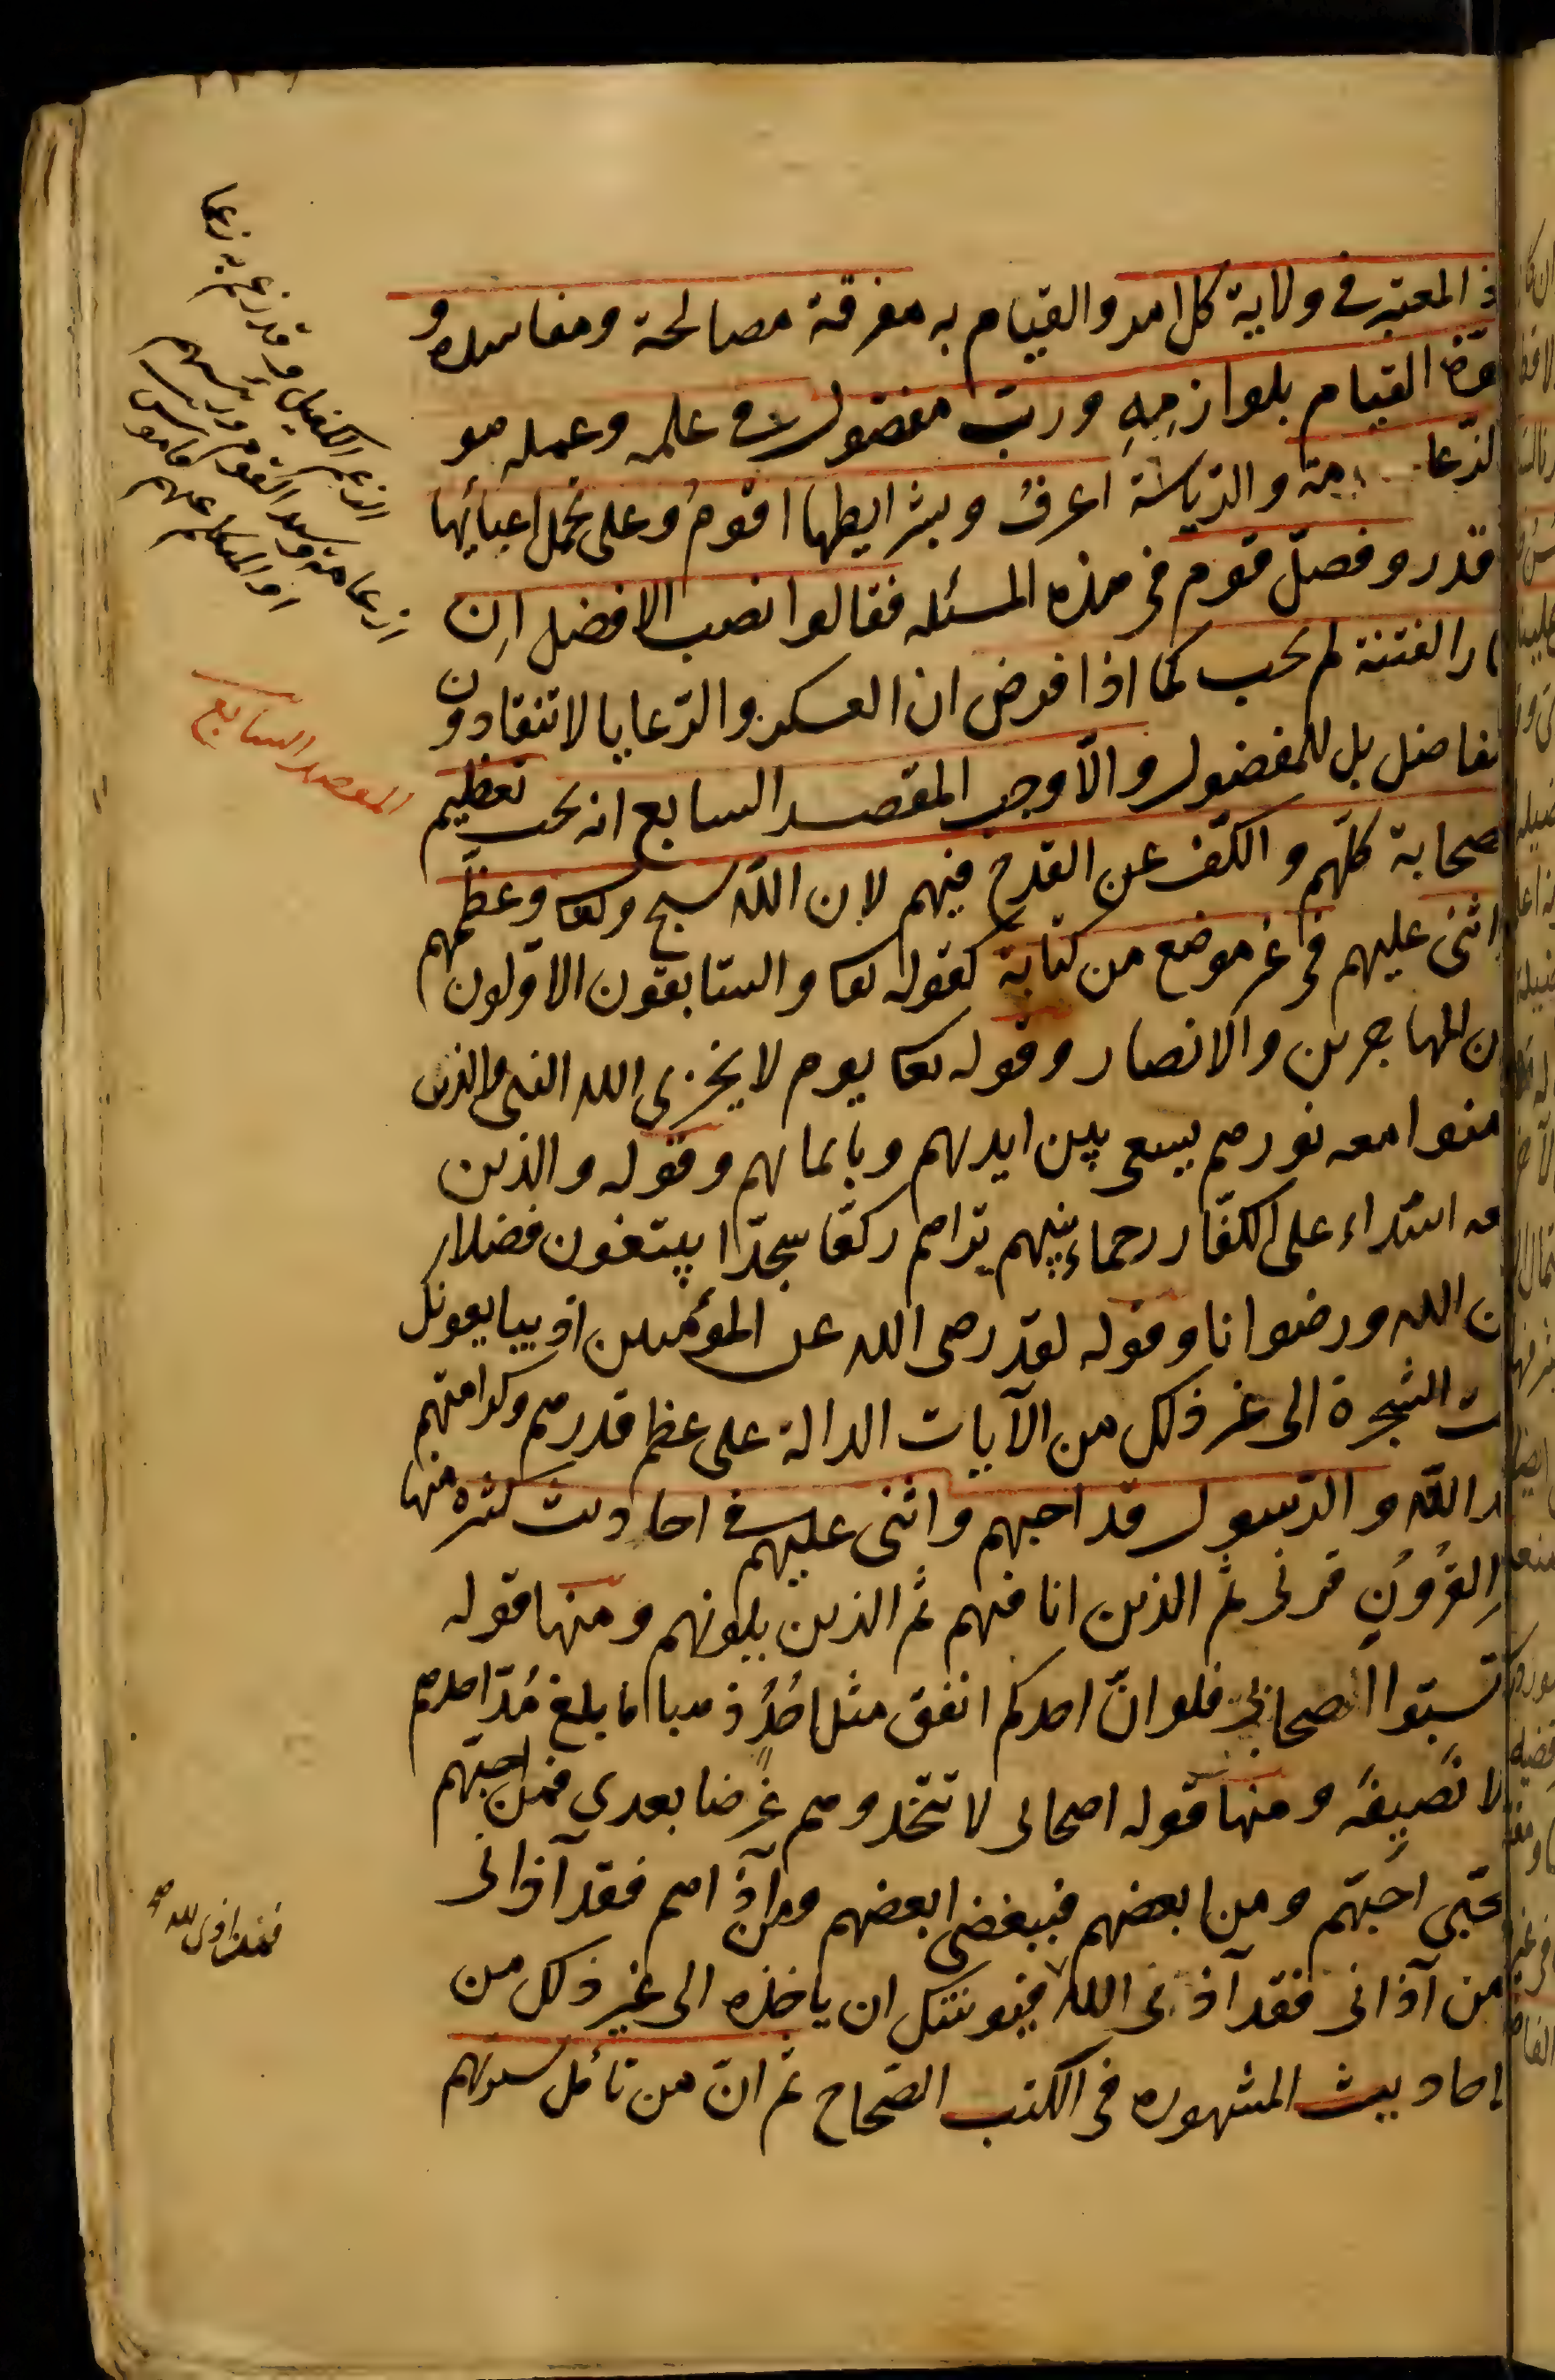 المعتبر في ولاية كل امر والقيام به معرفة مصالحة ومفاسده و
قوة القيام بلوازمه ورب مفضول في علمه وعمله هو
الزعا مة والرياسة اعرف وبشرايطها اقوم وعلى تحمل اعبائها
قدر وفصّل قوم في هذه المسئله فقالوا نصب الافضل اِن
ار الفتنة لم يحب كما اذا فرض ان العسكر والرّعايا لا تنقادون
لفاضل بل للمفضول والّا وجب المقصد السابع انه يحب تعظيم
صحابة كلّهم والكّف عن القدح فيهم لان اللّه سبح وتعا وعظّمهم
اثنى عليهم في غير موضع من كتابة كقوله تعا والسّابقون الاوّلون
ن المهاجرين والانصار وقوله تعا يوم لا يخزى الله النبى والذين
منوا معه نورهم يسعى بين ايديهم وبايمانهم وقوله والذين
عه اشدّاء على الكفّار رحماء بينهم تراهم ركّعا سجدّا يبتغون فضلا
ن الله ورضوانا وقوله لقد رضى الله عن المؤمنين اذ يبايعونك
ت الشجرة الى غير ذلك من الآيات الدالة على عظم قدرهم وكرامتهم
د اللّه والرّسول قد احبهم واثنى عليهم في احاديث كثيرة منها
ر القُرُونِ قرنى ثم الذين انا فيهم ثم الذين يلونهم ومنها قوله
تسبّوا اصحابي فلو انّ احدكم انفق مثل اُحُدٍ ذهبا ما بلغ مُدّ احدهم
لا نَصِيفَه ومنها قوله اصحابى لا تتخذوهم غَرَضا بعدى فمن احبّهم
حبّى احبّهم ومن ابغضهم فببغضى ابغضهم ومن آذاهم فقد آذانى
من آذانى فقد آذنى الله فيوشك ان ياخذه الى غير ذلك من
احاديث المشهوره في الكتب الصّحاح ثم انّ من تأمّل سيرتهم
الزعيم الكفيل وقد زعم به زعما
ازعامة وسيد القوم ورئيسهم
او المتكلم عنهم قاموس
المقصد السابع
فقد اذى الله صح